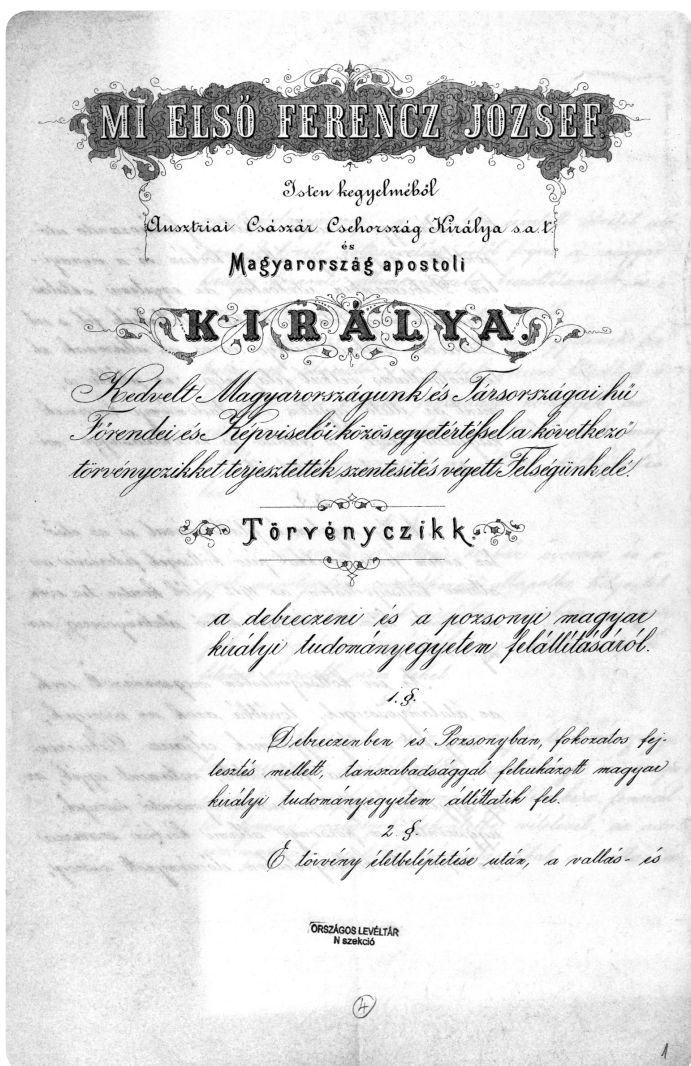 MI ELSŐ FERENCZ JÓZSEF
Isten kegyelméből
Ausztriai Császár Csehország Királya s.a.t.
és
Magyarország apostoli
KIRÁLYA.
Kedvelt Magyarországunk és Társországai hű
Főrendei és Képviselői közös egyetértéssel a következő
törvényczikket terjesztették szentesítés végett Felségünk elé:
Törvényczikk.
a debreczeni és a pozsonyi magyar
királyi tudományegyetem felállításáról.
1. §.
Debreczenben és Pozsonyban, fokozatos fej-
lesztés mellett, tanszabadsággal felruházott magyar
királyi tudományegyetem állíttatik fel.
2. §.
E törvény életbeléptetése után, a vallás- és
ORSZÁGOS LEVÉLTÁR
N szekció
4
1